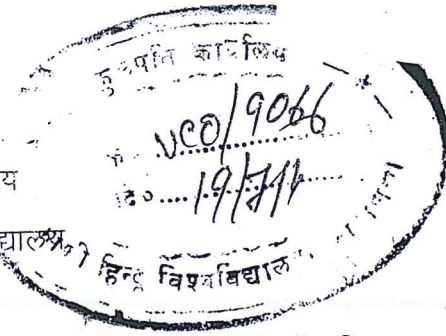 कुलपति कार्यालय
VCO/9066
दि० 19/7/11
य
द्यालय
हिन्दू विश्वविद्यालय